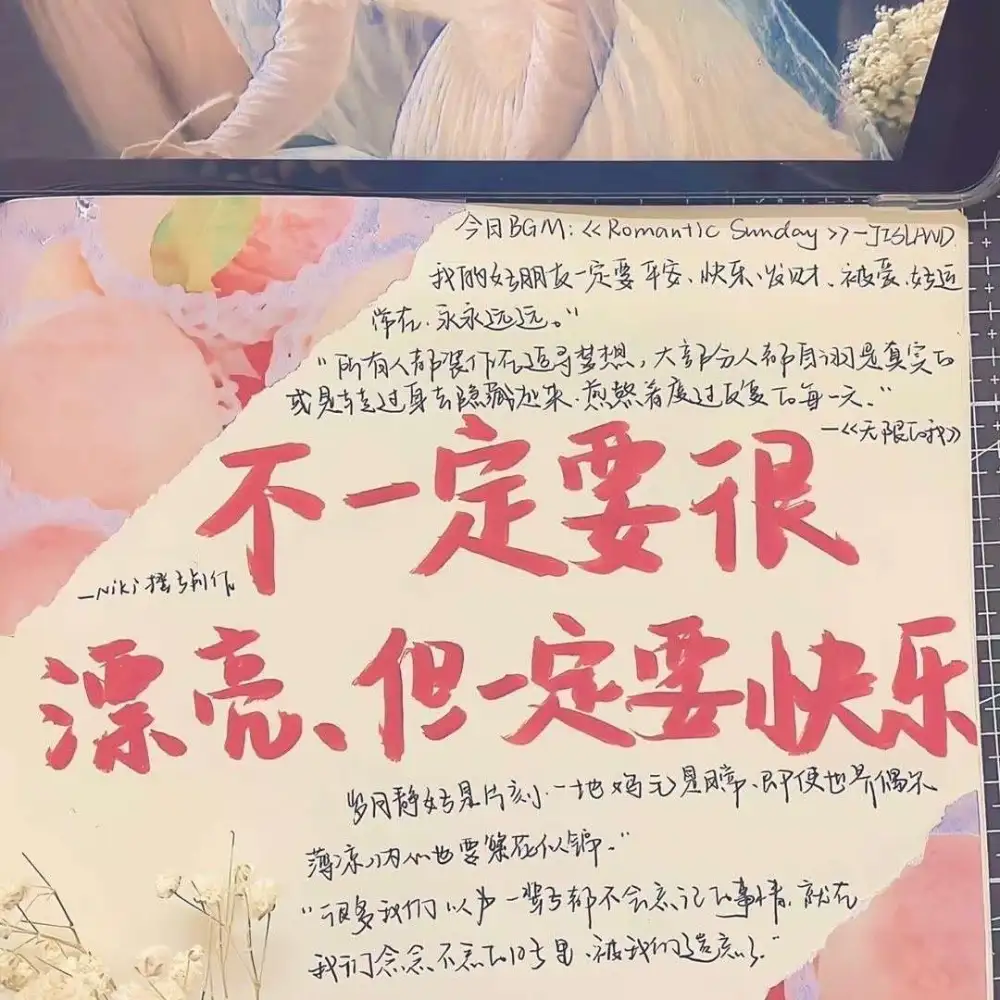 今日BGM:<<Romantic Sunday>>-JISLAND
我的好朋友一定要平安、快乐、发财、被爱、好运
常在、永永远远。"
"所有人都装作在追寻梦想,大部分人都自诩是真实的
或是转过身去隐藏起来、煎熬着度过反复的每一天。"
—<<无限的我>>
不一定要很
—Niki 手写制作
漂亮、但一定要快乐
岁月静好是片刻、一地鸡毛是日常、即使世界偶尔
薄凉、内心也要繁花似锦。"
"很多我们以为一辈子都不会忘记的事情、就在
我们念念不忘的日子里、被我们遗忘了。"